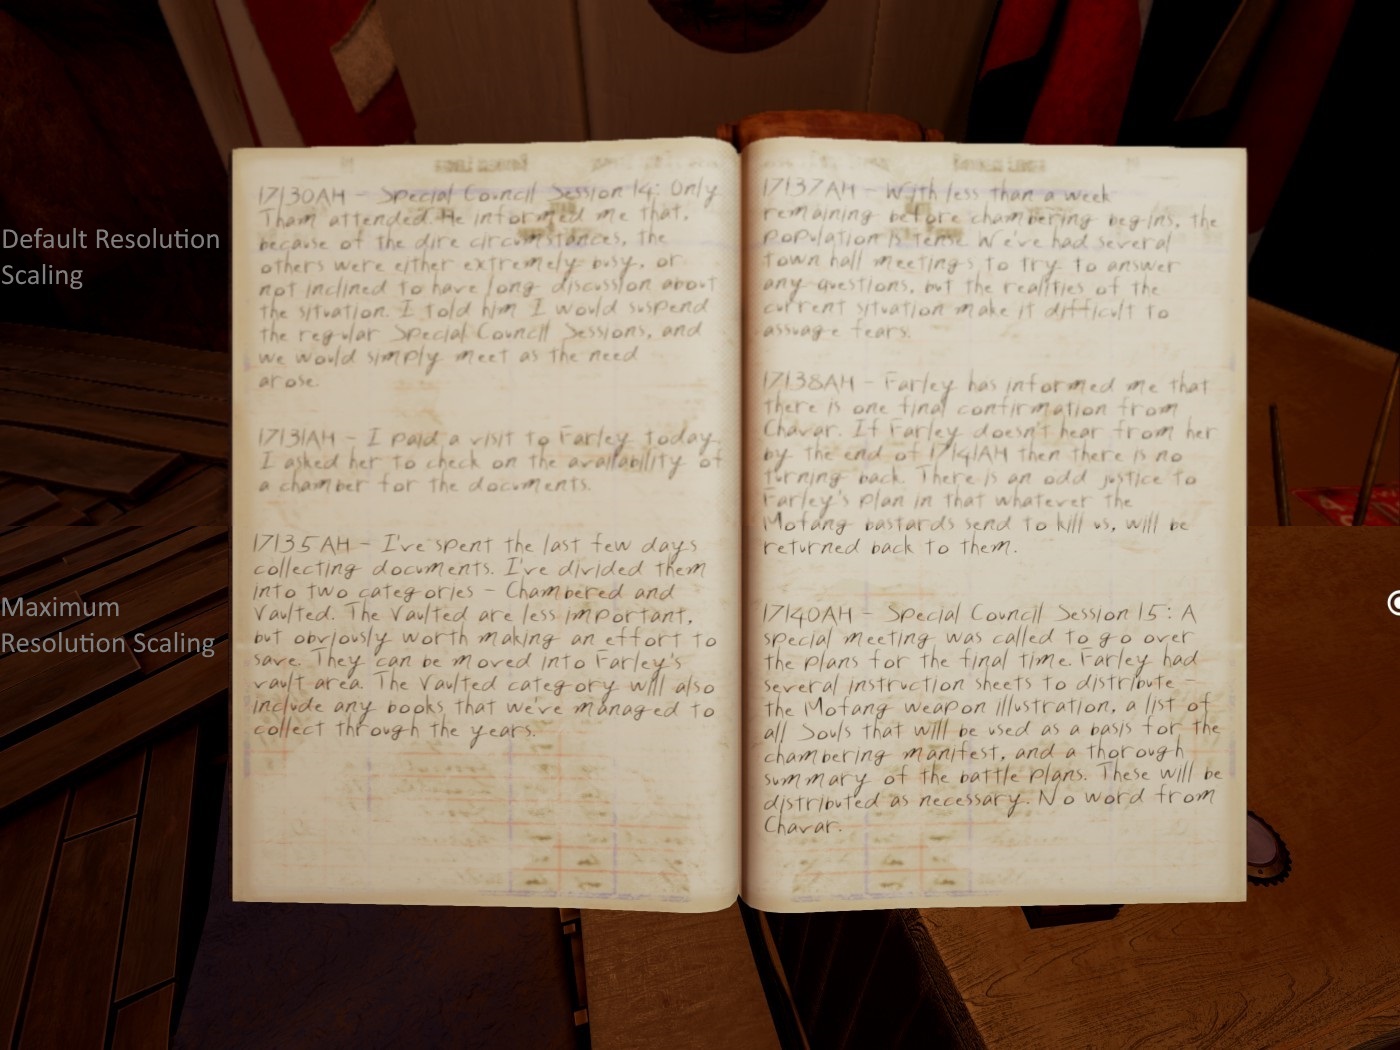 Default Resolution
Scaling
Maximum
Resolution Scaling
17130AH - Special Council Session 14: Only
Tham attended. He informed me that,
because of the dire circumstances, the
others were either extremely busy, or
not inclined to have long discussion about
the situation. I told him I would suspend
the regular Special Council Sessions, and
we would simply meet as the need
arose.
17131AH - I paid a visit to Farley today.
I asked her to check on the availability of
a chamber for the documents.
17135AH - I've spent the last few days
collecting documents. I've divided them
into two categories - Chambered and
Vaulted. The Vaulted are less important,
but obviously worth making an effort to
save. They can be moved into Farley's
vault area. The Vaulted category will also
include any books that we've managed to
collect through the years.
17137AH - With less than a week
remaining before chambering begins, the
population is tense. We've had several
town hall meetings to try to answer
any questions, but the realities of the
current situation make it difficult to
assuage fears.
17138AH - Farley has informed me that
there is one final confirmation from
Chavar. If Farley doesn't hear from her
by the end of 17141AH then there is no
turning back. There is an odd justice to
Farley's plan in that whatever the
Mofang bastards send to kill us, will be
returned back to them.
17140AH - Special Council Session 15: A
special meeting was called to go over
the plans for the final time. Farley had
several instruction sheets to distribute -
the Mofang weapon illustration, a list of
all Souls that will be used as a basis for the
chambering manifest, and a thorough
summary of the battle plans. These will be
distributed as necessary. No word from
Chavar.